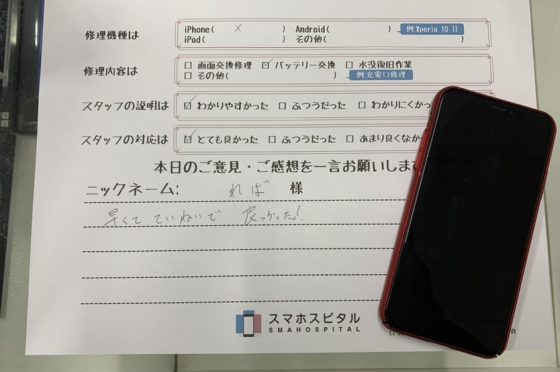 修理機種は
iPhone( X ) Android( ) 例:Xperia 10 II
iPad( ) その他( )
修理内容は
□ 画面交換修理 ☑ バッテリー交換 □ 水没復旧作業
□ その他( ) 例:充電口修理
スタッフの説明は ☑ わかりやすかった □ ふつうだった □ わかりにくかっ
スタッフの対応は ☑ とても良かった □ ふつうだった □ あまり良くなか
本日のご意見・ご感想を一言お願いします
ニックネーム: れば 様
早くて ていねいで 良かった!
スマホスピタル
SMAHOSPITAL